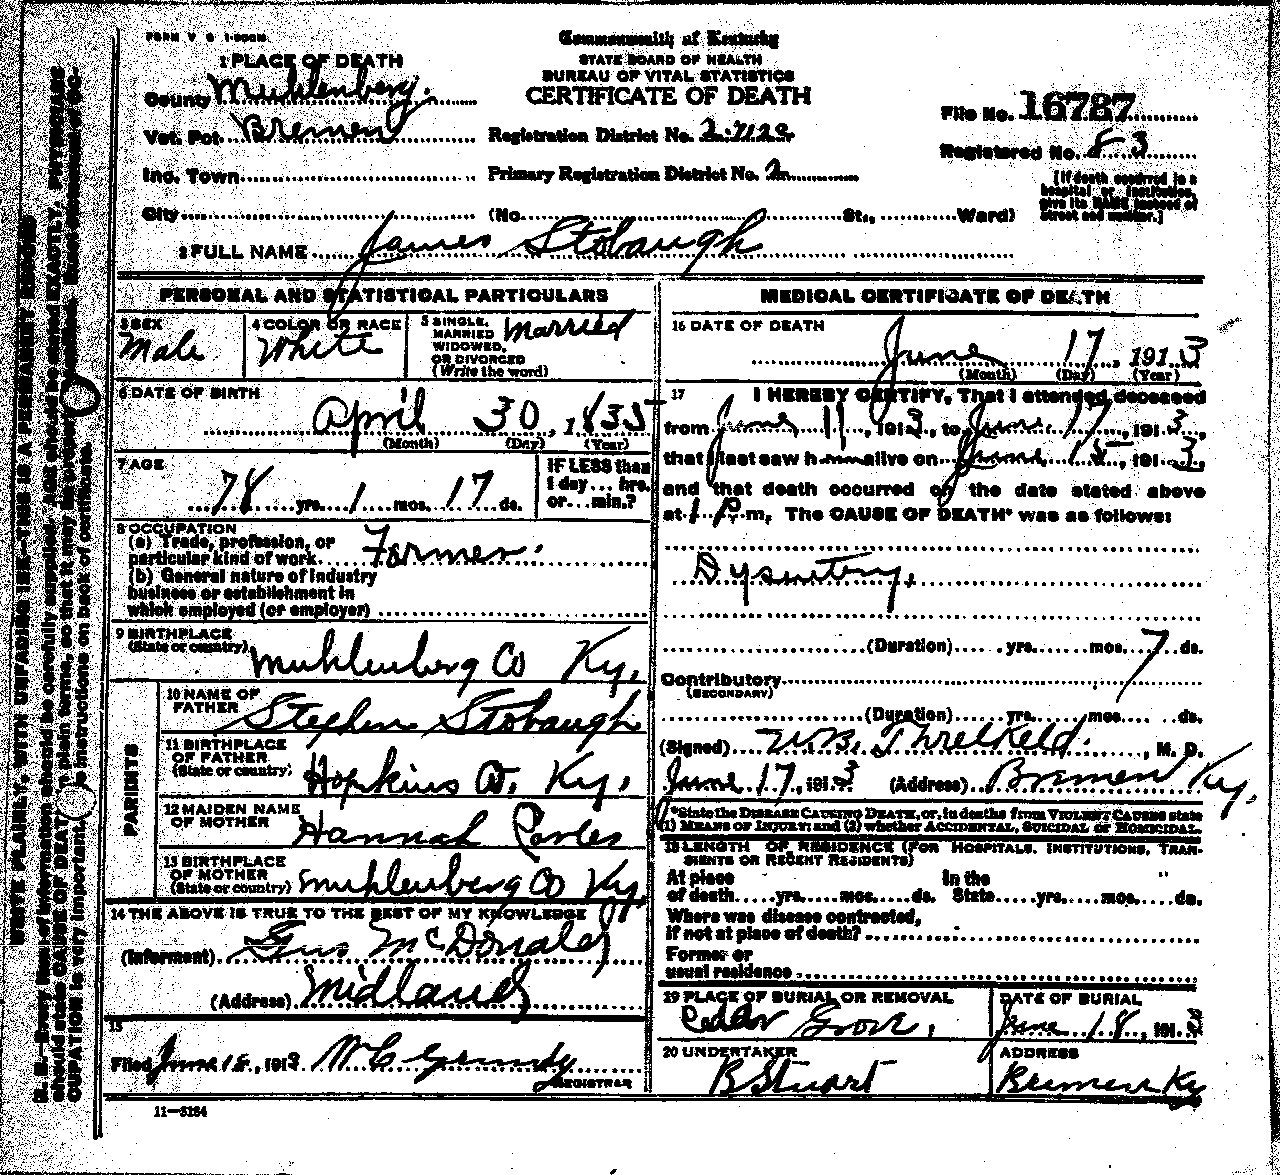 FORM V S 1-500M
Commonwealth of Kentucky
STATE BOARD OF HEALTH
BUREAU OF VITAL STATISTICS
CERTIFICATE OF DEATH
1 PLACE OF DEATH
County Muhlenberg.
Vot. Pct. Bremen
Registration District No.
Inc. Town
Primary Registration District No. 2
City
(No. St., Ward)
File No. 16787
Registered No. 3
[If death occurred in a
hospital or institution,
give its NAME instead of
street and number.]
2 FULL NAME James Stobaugh
PERSONAL AND STATISTICAL PARTICULARS
3 SEX
Male
4 COLOR OR RACE
White
5 SINGLE,
MARRIED
WIDOWED,
OR DIVORCED
(Write the word)
Married
6 DATE OF BIRTH
April 30, 1835
(Month) (Day) (Year)
7 AGE
78 yrs. 1 mos. 17 ds.
IF LESS than
1 day... hrs.
or...min.?
8 OCCUPATION
(a) Trade, profession, or
particular kind of work Farmer.
(b) General nature of industry
business or establishment in
which employed (or employer)
9 BIRTHPLACE
(State or country) Muhlenberg Co Ky.
PARENTS
10 NAME OF
FATHER
Stephen Stobaugh
11 BIRTHPLACE
OF FATHER
(State or country) Hopkins Co. Ky.
12 MAIDEN NAME
OF MOTHER
Hannah
13 BIRTHPLACE
OF MOTHER
(State or country) Muhlenberg Co Ky.
14 THE ABOVE IS TRUE TO THE BEST OF MY KNOWLEDGE
(Informant) Gus McDonald
(Address) Midland
15
Filed June 18, 1913 W C Grundy
REGISTRAR
11—3184
MEDICAL CERTIFICATE OF DEATH
16 DATE OF DEATH
June 17, 1913
(Month) (Day) (Year)
17 I HEREBY CERTIFY, That I attended deceased
from June 11, 1913, to June 17, 1913,
that I last saw h alive on June 15, 1913,
and that death occurred on the date stated above
at 1 P m. The CAUSE OF DEATH* was as follows:
Dysentery.
(Duration) yrs. mos. 7 ds.
Contributory
(SECONDARY)
(Duration) yrs. mos. ds.
(Signed) Threlkeld, M. D.
June 17, 1913 (Address) Bremen Ky.
*State the DISEASE CAUSING DEATH, or, in deaths from VIOLENT CAUSES state
(1) MEANS OF INJURY; and (2) whether ACCIDENTAL, SUICIDAL or HOMICIDAL.
18 LENGTH OF RESIDENCE (FOR HOSPITALS, INSTITUTIONS, TRAN-
SIENTS OR RECENT RESIDENTS)
At place In the
of death yrs. mos. ds. State yrs. mos. ds.
Where was disease contracted,
if not at place of death?
Former or
usual residence
19 PLACE OF BURIAL OR REMOVAL
Cedar Grove.
DATE OF BURIAL
June 18, 1913
20 UNDERTAKER
B Stuart
ADDRESS
Bremen Ky
WRITE PLAINLY, WITH UNFADING INK—THIS IS A PERMANENT RECORD
N. B.—Every item of information should be carefully supplied. AGE should be stated EXACTLY. PHYSICIANS
should state CAUSE OF DEATH in plain terms, so that it may be properly classified. Exact statement of OC-
CUPATION is very important. See instructions on back of certificate.